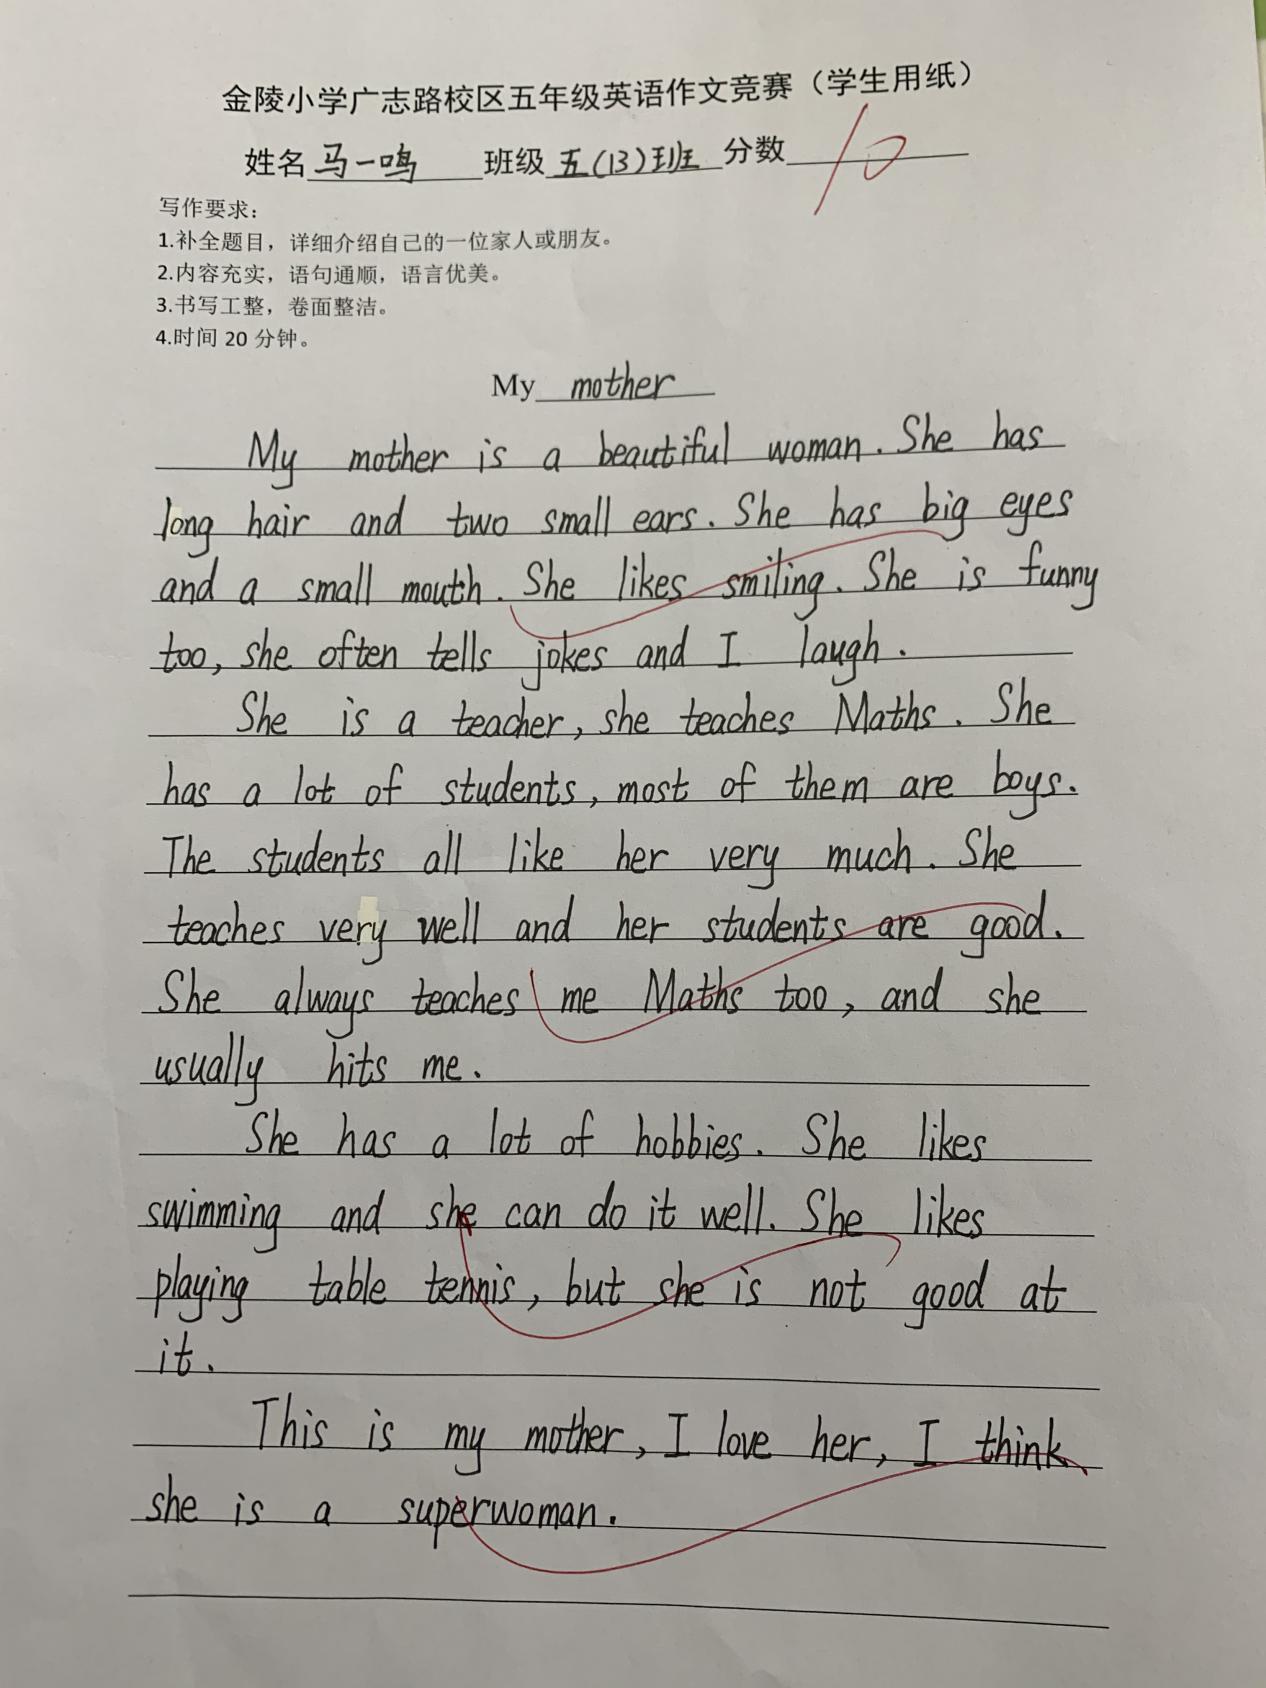 金陵小学广志路校区五年级英语作文竞赛（学生用纸）
姓名 马一鸣 班级 五(13)班 分数 10
写作要求：
1.补全题目，详细介绍自己的一位家人或朋友。
2.内容充实，语句通顺，语言优美。
3.书写工整，卷面整洁。
4.时间 20 分钟。
My mother
My mother is a beautiful woman. She has
long hair and two small ears. She has big eyes
and a small mouth. She likes smiling. She is funny
too, she often tells jokes and I laugh.
She is a teacher, she teaches Maths. She
has a lot of students, most of them are boys.
The students all like her very much. She
teaches very well and her students are good.
She always teaches me Maths too, and she
usually hits me.
She has a lot of hobbies. She likes
swimming and she can do it well. She likes
playing table tennis, but she is not good at
it.
This is my mother, I love her, I think
she is a superwoman.